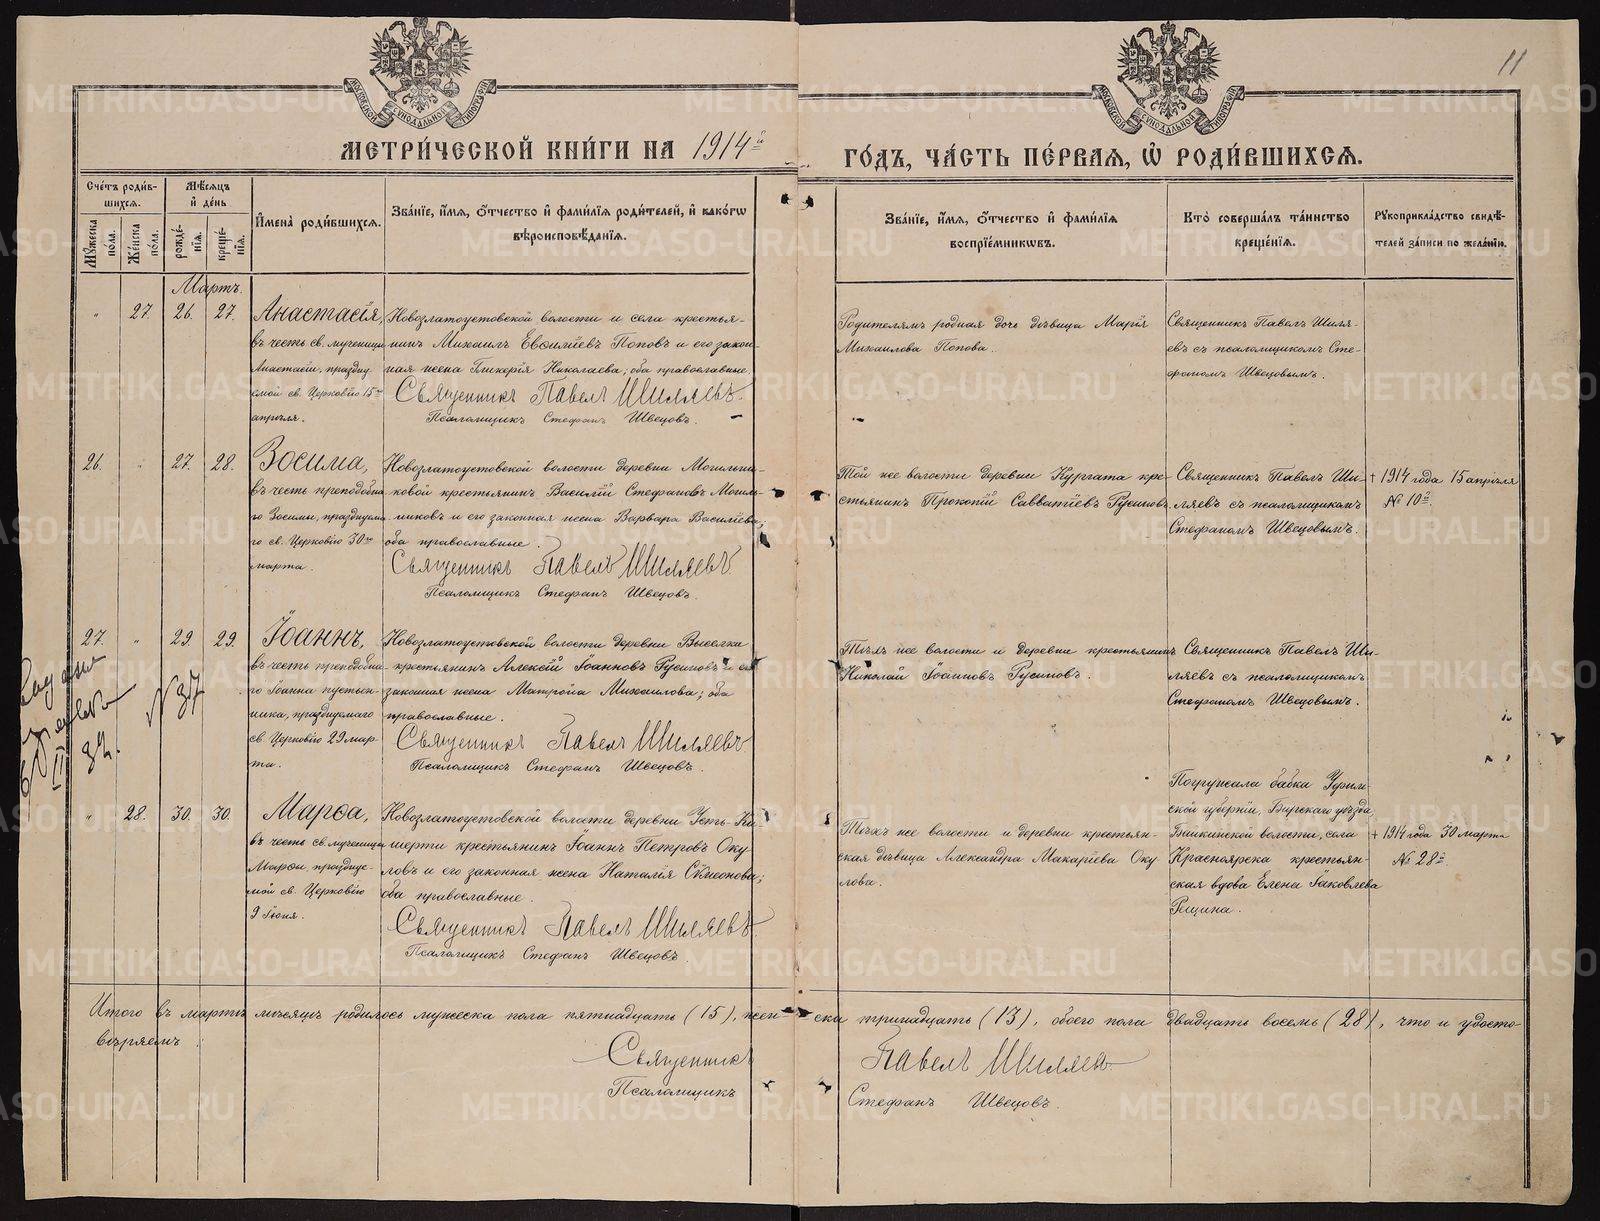 11
МОСКОВСКОЙ СѴНОДАЛЬНОЙ ТИПОГРАФІИ
МОСКОВСКОЙ СѴНОДАЛЬНОЙ ТИПОГРАФІИ
МЕТРИ́ЧЕСКОЙ КНИ́ГИ НА 1914й ГО́ДЪ, ЧА́СТЬ ПЕ́РВАѦ, Ѡ҆ РОДИ́ВШИХСѦ.
Сче́тъ роди́в-
шихсѧ.
Мꙋ́жеска по́ла.
Же́нска по́ла.
Мѣ́сѧцъ
и҆ де́нь
рожде́нїѧ.
креще́нїѧ.
И҆мена̀ роди́вшихсѧ.
Зва́нїе, и҆́мѧ, ѻ҆́тчество и҆ фами́лїѧ роди́телей, и҆ како́гѡ
вѣроисповѣ́данїѧ.
Зва́нїе, и҆́мѧ, ѻ҆́тчество и҆ фами́лїѧ
воспрїе́мникѡвъ.
Кто̀ соверша́лъ та́инство
креще́нїѧ.
Рꙋкоприкла́дство свидѣ́-
телей за́писи по жела́нїю.
Мартъ.
" 27. 26. 27.
Анастасія,
въ честь св. мученицы
Анастасіи, праздну-
емой св. Церковію 15го
апрѣля.
Новозлатоустовской волости и села крестья-
нинъ Михаилъ Евѳиміевъ Поповъ и его закон-
ная жена Гликерія Николаева; оба православные.
Священникъ Павелъ Шиляевъ.
Псаломщикъ Стефанъ Швецовъ.
Родителямъ родная дочь дѣвица Марія
Михаилова Попова.
Священникъ Павелъ Шиля-
евъ съ псаломщикомъ Сте-
фаномъ Швецовымъ.
26. " 27. 28.
Зосима,
въ честь преподобна-
го Зосимы, празднуема-
го св. Церковію 30го
марта.
Новозлатоустовской волости деревни Могильни-
ковой крестьянинъ Василій Стефановъ Могиль-
никовъ и его законная жена Варвара Василіева;
оба православные.
Священникъ Павелъ Шиляевъ.
Псаломщикъ Стефанъ Швецовъ.
Той же волости деревни Кургата кре-
стьянинъ Прокопій Савватіевъ Русиновъ.
Священникъ Павелъ Ши-
ляевъ съ псаломщикомъ
Стефаномъ Швецовымъ.
† 1914 года 15 апрѣля
№ 10й.
27. " 29. 29.
Іоаннъ,
въ честь преподобна-
го Іоанна пустын-
ника, празднуемаго
св. Церковію 29 мар-
та.
Новозлатоустовской волости деревни Выселка
крестьянинъ Алексій Іоанновъ Русиновъ и его
законная жена Матрона Михаилова; оба
православные.
Священникъ Павелъ Шиляевъ
Псаломщикъ Стефанъ Швецовъ.
Тѣхъ же волости и деревни крестьянинъ
Николай Іоанновъ Русиновъ.
Священникъ Павелъ Ши-
ляевъ съ псаломщикомъ
Стефаномъ Швецовымъ.
№ 37
" 28. 30. 30.
Марѳа,
въ честь св. мученицы
Марѳы празднуе-
мой св. Церковію
9 Іюня.
Новозлатоустовской волости деревни Усть-Ки-
шерти крестьянинъ Іоаннъ Петровъ Оку-
ловъ и его законная жена Наталія Сѵмеонова;
оба православные.
Священникъ Павелъ Шиляевъ.
Псаломщикъ Стефанъ Швецовъ.
Тѣхъ же волости и деревни крестьян-
ская дѣвица Александра Макаріева Оку-
лова.
Погружала бабка Уфим-
ской губерніи, Бирскаго уѣзда,
волости, села
Красноярска крестьян-
ская вдова Елена Іаковлева
† 1914 года 30 марта
№ 28й
Итого въ мартѣ мѣсяцѣ родилось мужеска пола пятнадцать (15), жен-ска тринадцать (13), обоего пола двадцать восемь (28), что и удосто-
вѣряемъ.
Священникъ Павелъ Шиляевъ.
Псаломщикъ Стефанъ Швецовъ.
METRIKI.GASO-URAL.RU